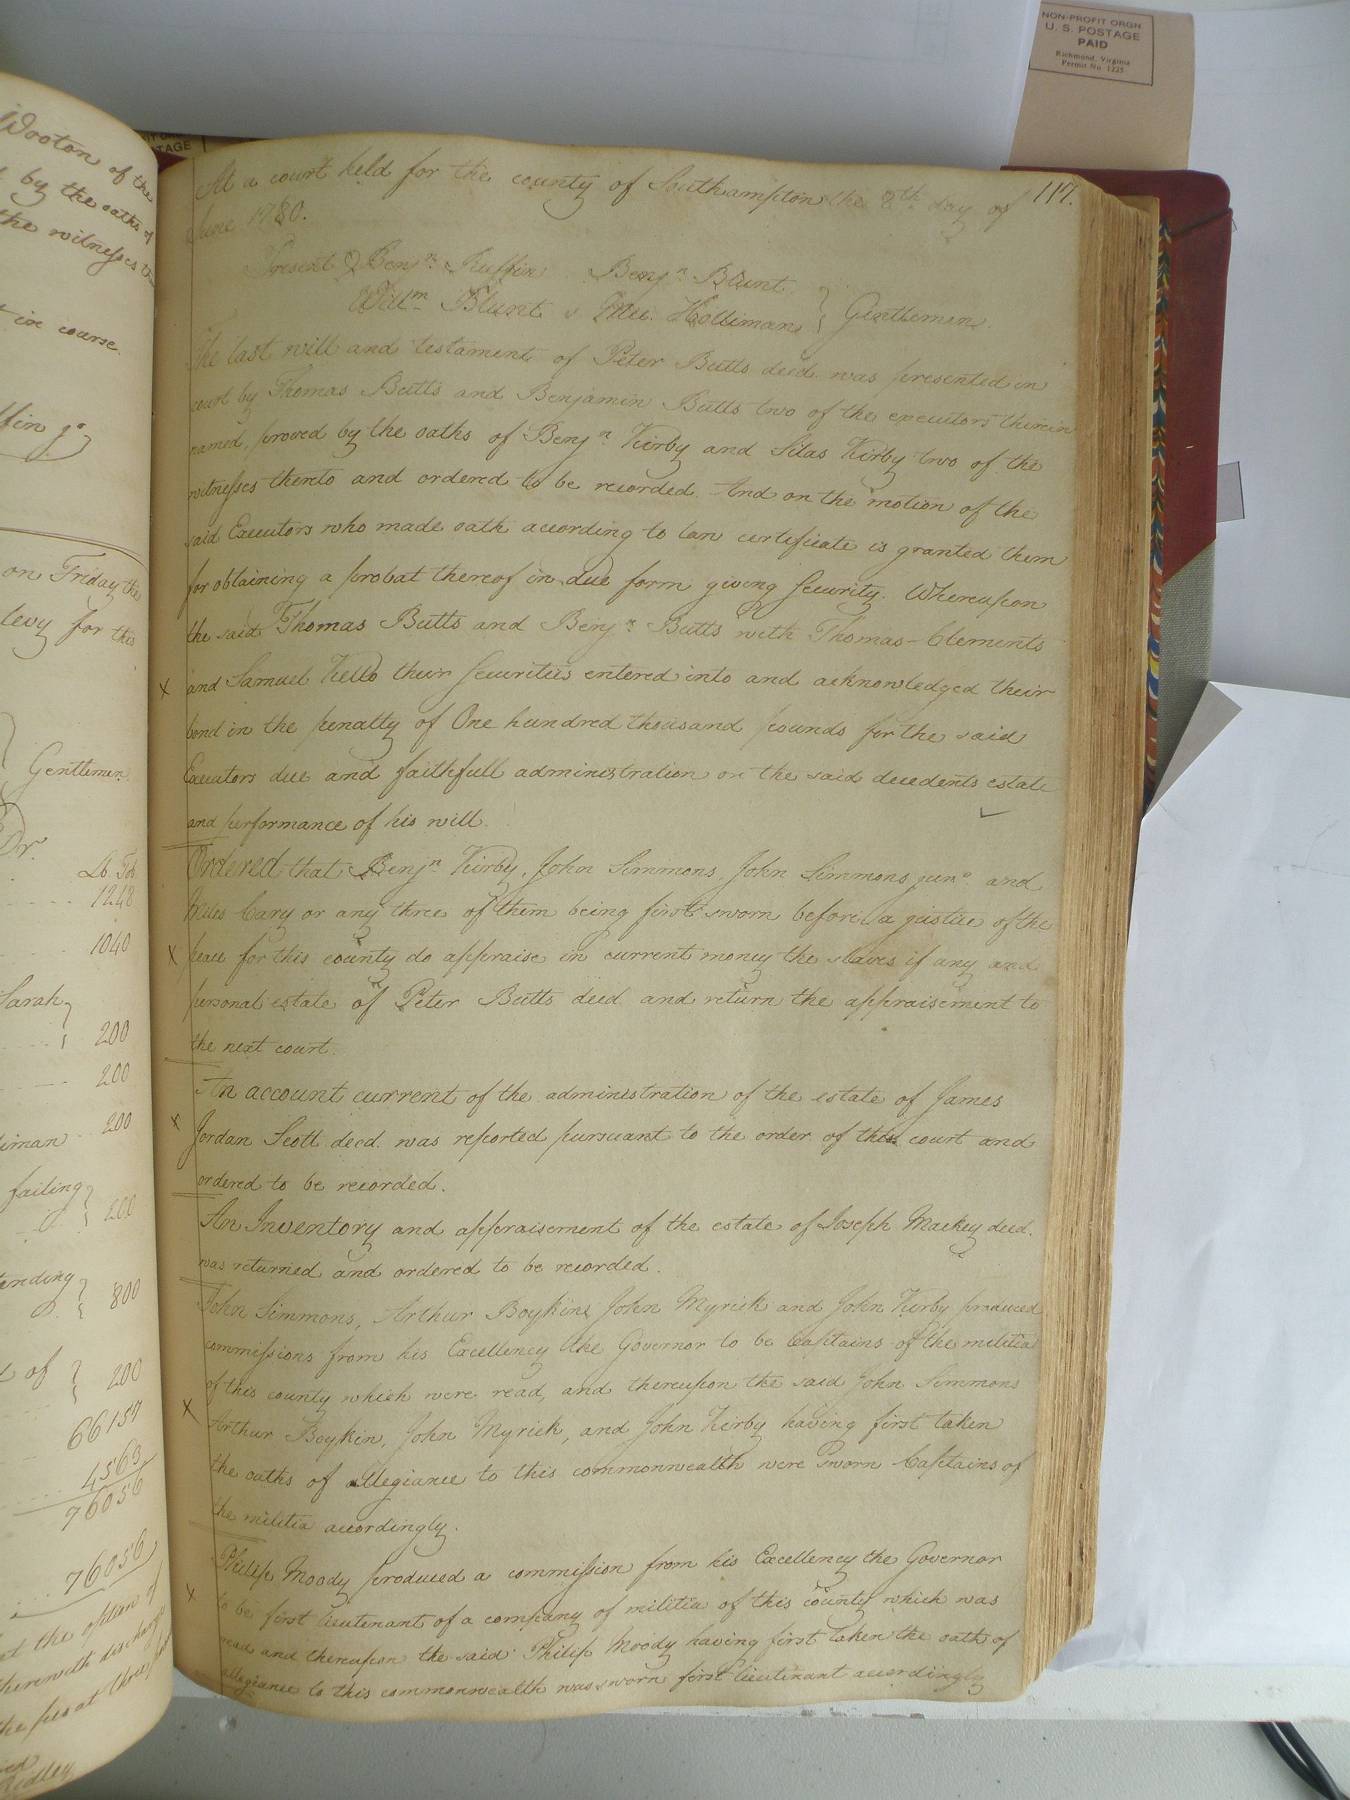 NON-PROFIT ORGN
U. S. POSTAGE
PAID
Richmond, Virginia
Permit No. 1225
TAGE
Wooton of the
by the oaths of
the witnesses
in course.
on Friday the
levy for this
Gentlemen
Dr.
Lb. Tob
1248
1040
Sarah
200
200
200
failing
200
800
of
200
66157
4563
76056
76056
at the option of
therewith discharge
Ridley
117.
At a court held for the county of Southampton the 8th day of
June 1780.
Present Benjn. Ruffin Benjn. Blunt
Willm. Blunt & Mic. Holliman Gentlemen.
The last will and testament of Peter Butts decd. was presented in
court by Thomas Butts and Benjamin Butts two of the executors therein
named, proved by the oaths of Benjn. Kirby and Silas Kirby two of the
witnesses thereto and ordered to be recorded. And on the motion of the
said Executors who made oath according to law certificate is granted them
for obtaining a probat thereof in due form giving security. Whereupon
the said Thomas Butts and Benjn. Butts with Thomas Clements
and Samuel Kello their securities entered into and acknowledged their
bond in the penalty of One hundred thousand pounds for the said
Executors due and faithfull administration on the said decedents estate
and performance of his will.
Ordered that Benjn Kirby, John Simmons, John Simmons junr. and
Miles Cary or any three of them being first sworn before a justice of the
peace for this county do appraise in current money the slaves if any and
personal estate of Peter Butts decd and return the appraisement to
the next court.
An account current of the administration of the estate of James
Jordan Scott decd. was reported pursuant to the order of this court and
ordered to be recorded.
An Inventory and appraisement of the estate of Joseph Mackey decd.
was returned and ordered to be recorded.
John Simmons, Arthur Boykin, John Myrick and John Kirby produced
commissions from his Excellency the Governor to be Captains of the militia
of this county which were read, and thereupon the said John Simmons
Arthur Boykin, John Myrick, and John Kirby having first taken
the oaths of allegiance to this commonwealth were sworn Captains of
the militia accordingly.
Philip Moody produced a commission from his Excellency the Governor
to be first lieutenant of a company of militia of this county which was
read and thereupon the said Philip Moody having first taken the oath of
allegiance to this commonwealth was sworn first lieutenant accordingly